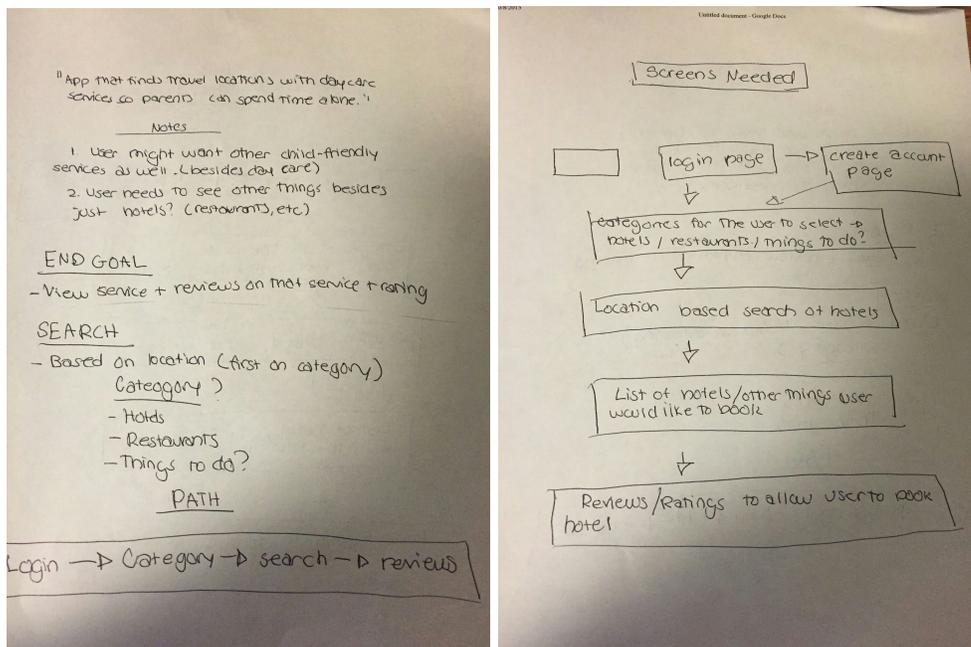 "App that finds travel locations with daycare
services so parents can spend time alone."
Notes
1. User might want other child-friendly
services as well. (besides day care)
2. User needs to see other things besides
just hotels? (restaurants, etc)
END GOAL
- View service + reviews on that service + rating
SEARCH
- Based on location (first on category)
Cateogory ?
- Hotels
- Restaurants
- Things to do?
PATH
Login → Category → search → reviews
Untitled document - Google Docs
Screens Needed
login page → create account
page
categories for the user to select →
hotels / restaurants / things to do?
Location based search of hotels
List of hotels/other things user
would like to book
Reviews/Ratings to allow user to book
hotel